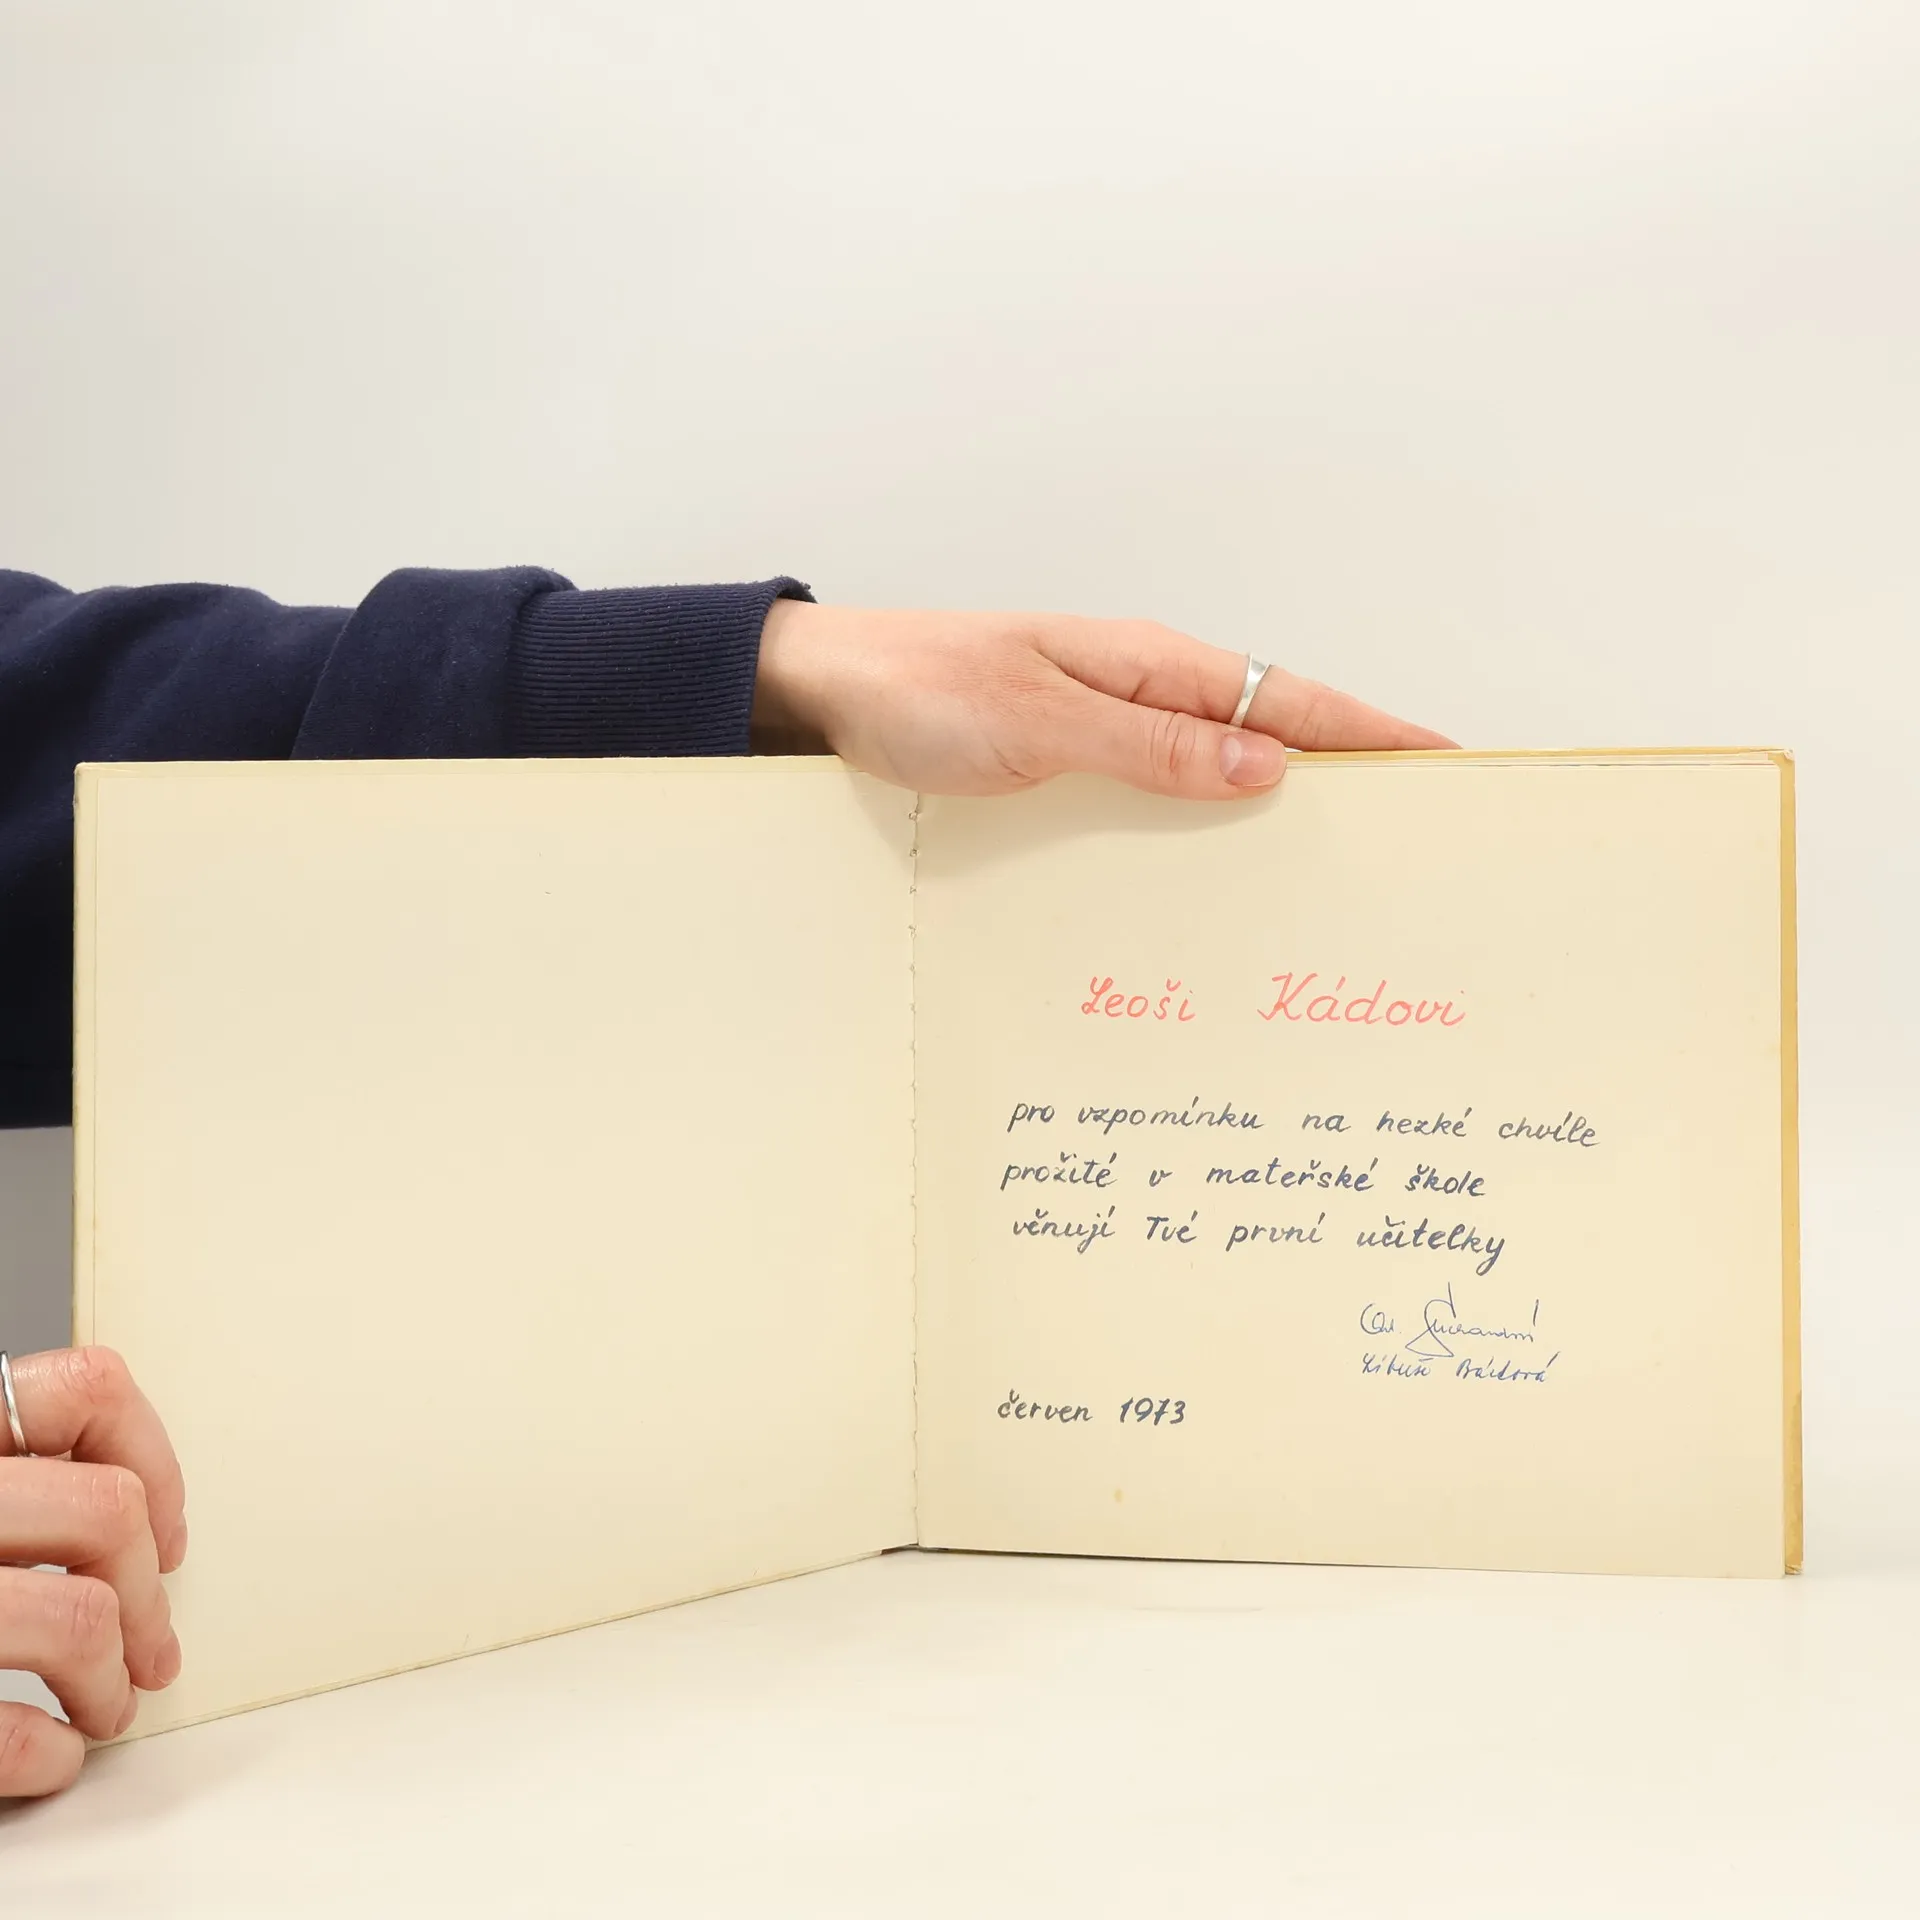 Leoši Kádovi
pro vzpomínku na hezké chvíle
prožité v mateřské škole
věnují Tvé první učitelky
Libuše
červen 1973